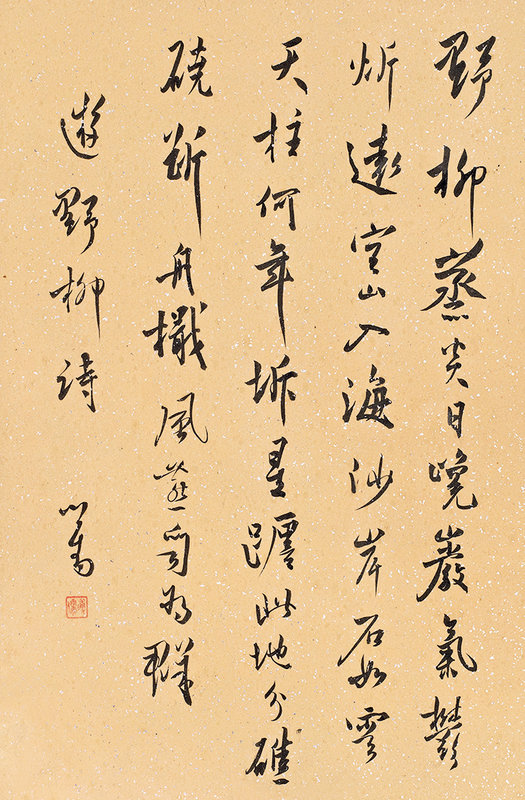 野柳蒸炎日巉巖氣鬱
炘遠空山入海沙岸石如雲
天柱何年坼星躔此地分礁
磽斷舟檝風燕自為群
遊野柳詩
心畬